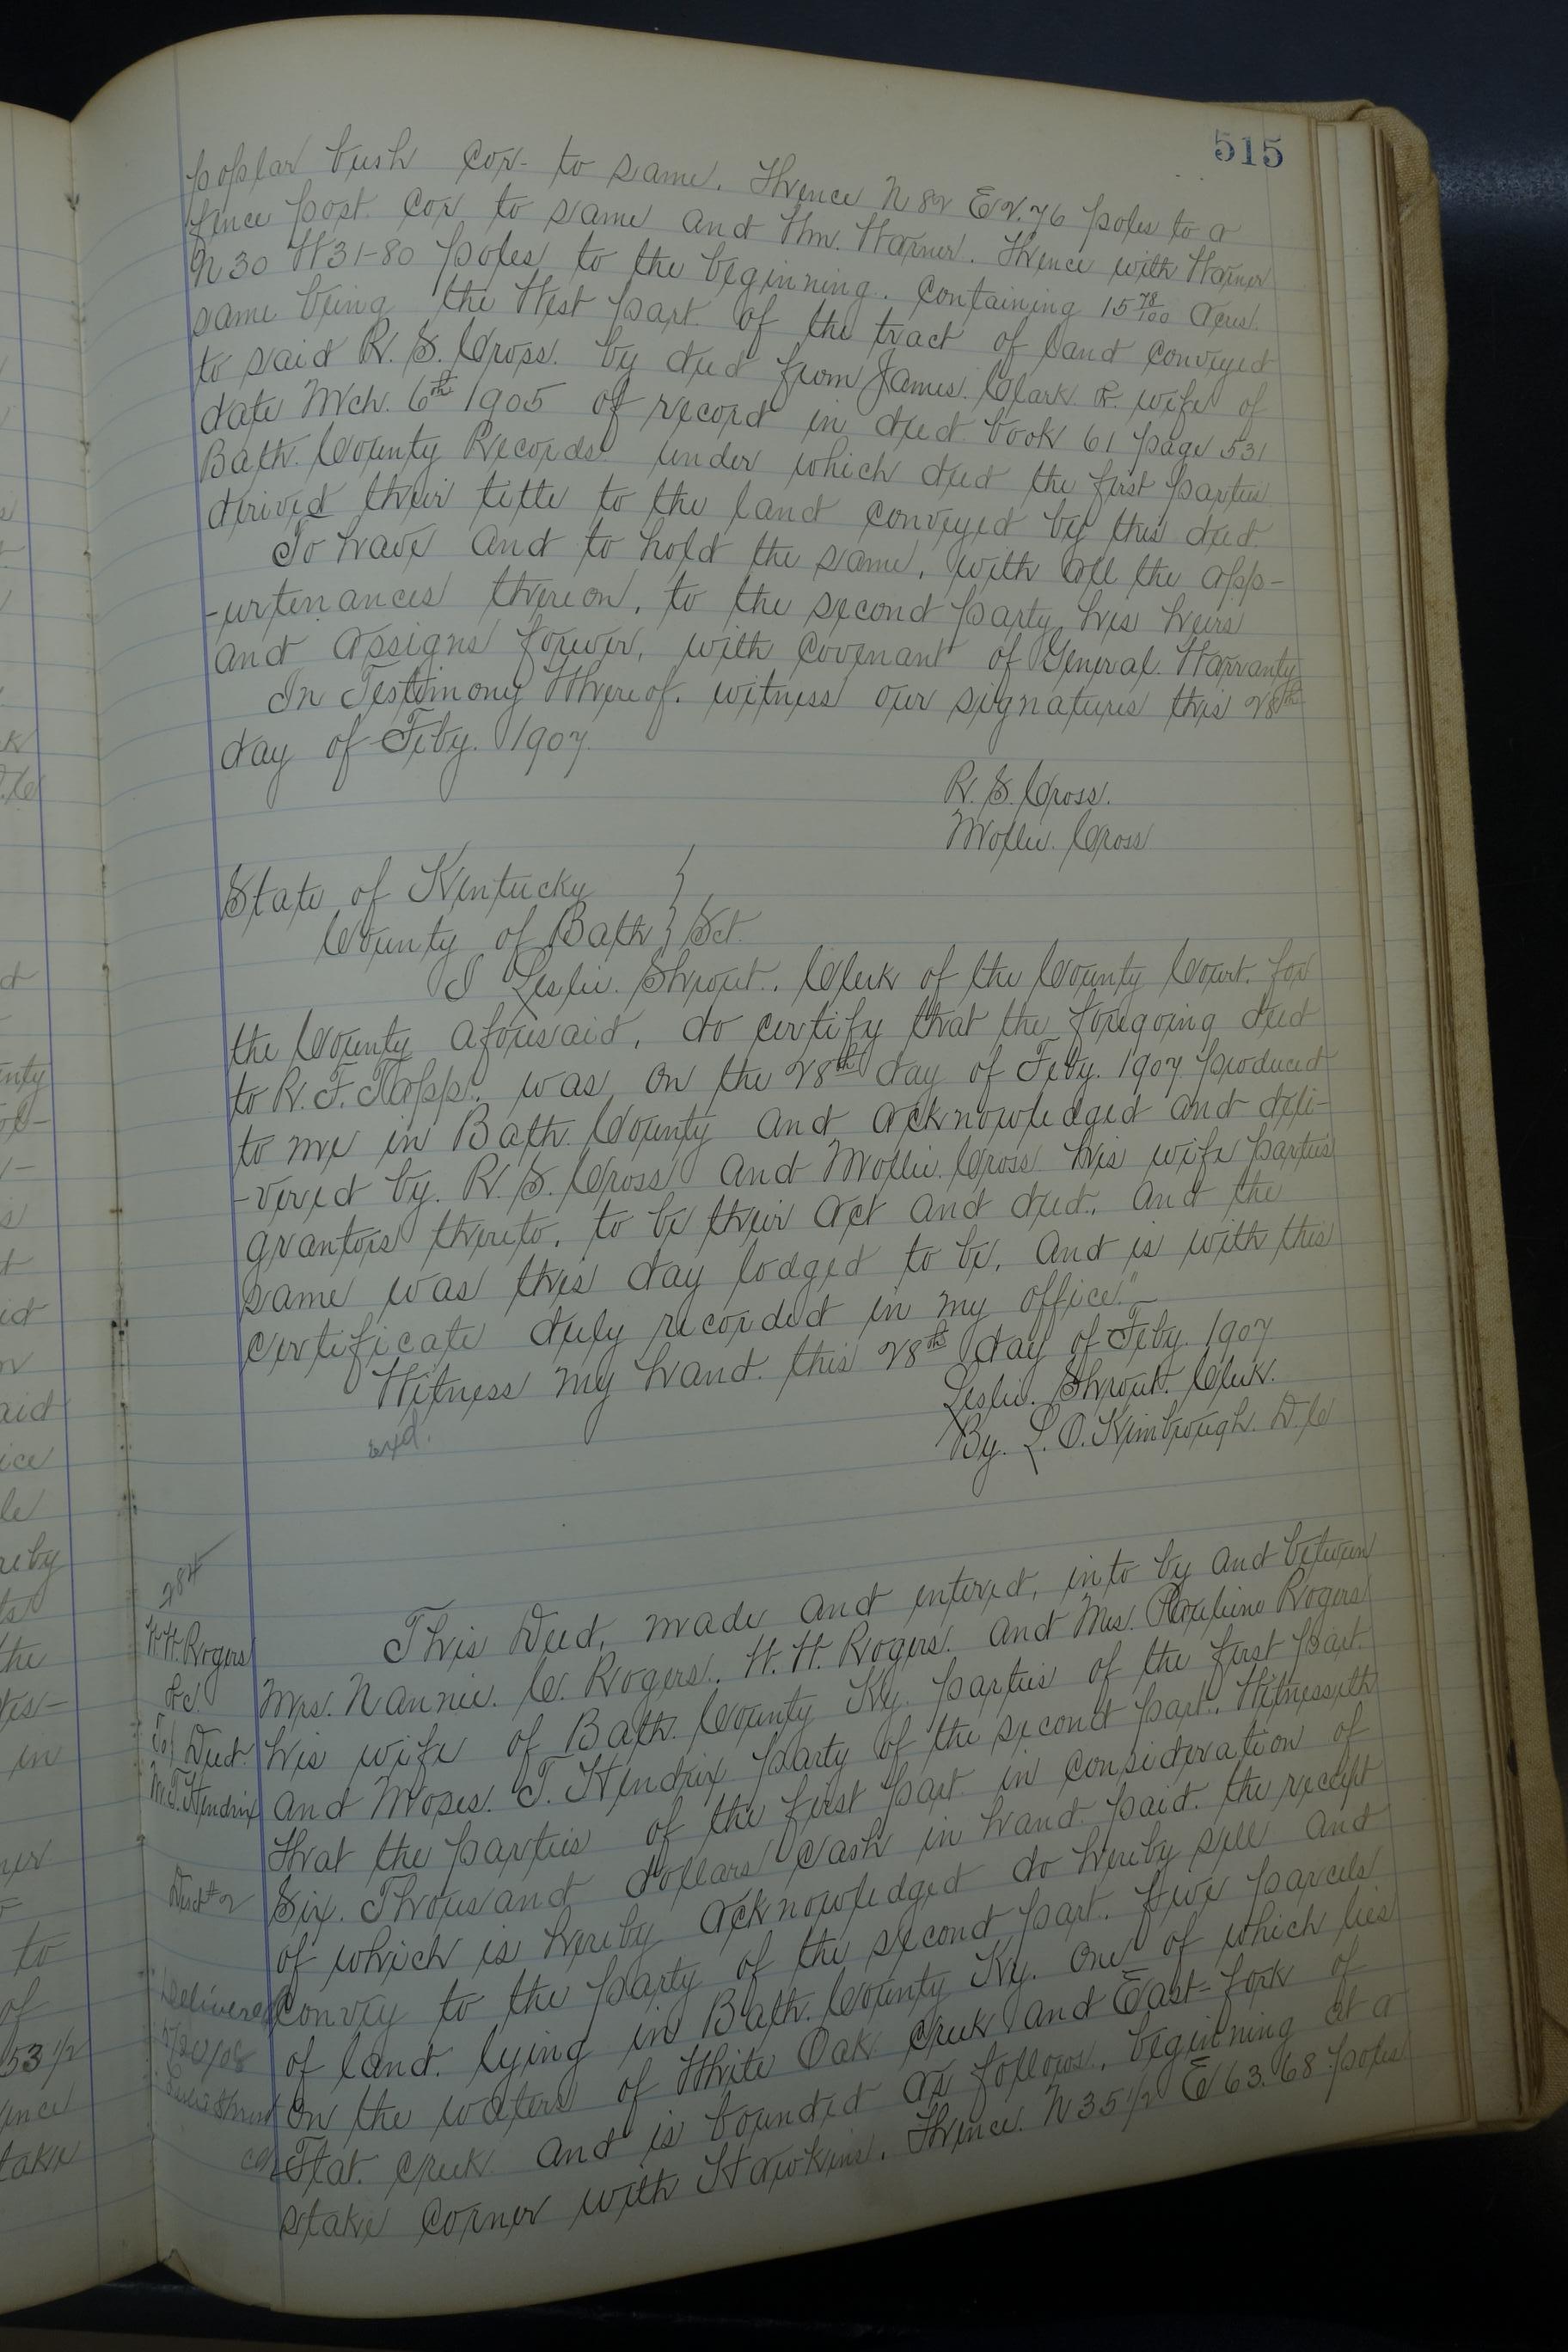 515
poplar bush cor- to same. Thence N 82 E 2.76 poles to a
fence post cor to same and Wm. Warner. Thence with Warner
N 30 W 31-80 poles to the beginning. Containing 15 78/100 acres.
same being the West part of the tract of land conveyed
to said R. S. Cross. by deed from James Clark & wife of
date Mch. 6th 1905 of record in deed book 61 page 531
Bath County Records under which deed the first parties
derived their title to the land conveyed by this deed.
To have and to hold the same, with all the app-
-urtenances thereon, to the second party his heirs
and assigns forever, with Covenant of General Warranty
In Testimony Whereof. witness our signatures this 28th
day of Feby. 1907.
R. S. Cross.
Mollie. Cross
State of Kentucky }
County of Bath } Sct.
I Leslie. Shrout., Clerk of the County Court. for
the County aforesaid, do certify that the foregoing deed
to R. F. Tapp. was, on the 28th day of Feby. 1907 produced
to me in Bath County and acknowledged and deli-
-vered by. R. S. Cross and Mollie. Cross his wife parties
grantors thereto, to be their act and deed, and the
same was this day lodged to be, and is with this
certificate duly recorded in my office."
Witness my hand. this 28th day of Feby. 1907
Leslie. Shrout. Clerk.
By. L. O. Kimbrough. D.C
exd.
284
W.H. Rogers
&c.
To} Deed.
M.T. Hendrix
Deed #2
Delivered
Leslie Shrout
This Deed, made and entered, into by and between
Mrs. Nannie. C. Rogers., W. H. Rogers. and Mrs. Pauline Rogers
his wife of Bath. County Ky. parties of the first part.
and Moses. T. Hendrix party of the second part., Witnesseth
that the parties of the first part. in consideration of
Six. Thousand dollars cash in hand paid. the receipt
of which is hereby acknowledged do hereby sell and
convey to the party of the second part. five parcels
of land. lying in Bath. County Ky. One of which lies
on the waters of White Oak Creek and East-fork of
Flat. Creek and is bounded as follows, beginning at a
stake corner with Hawkins. Thence. N 35 1/2 E 63.68 poles